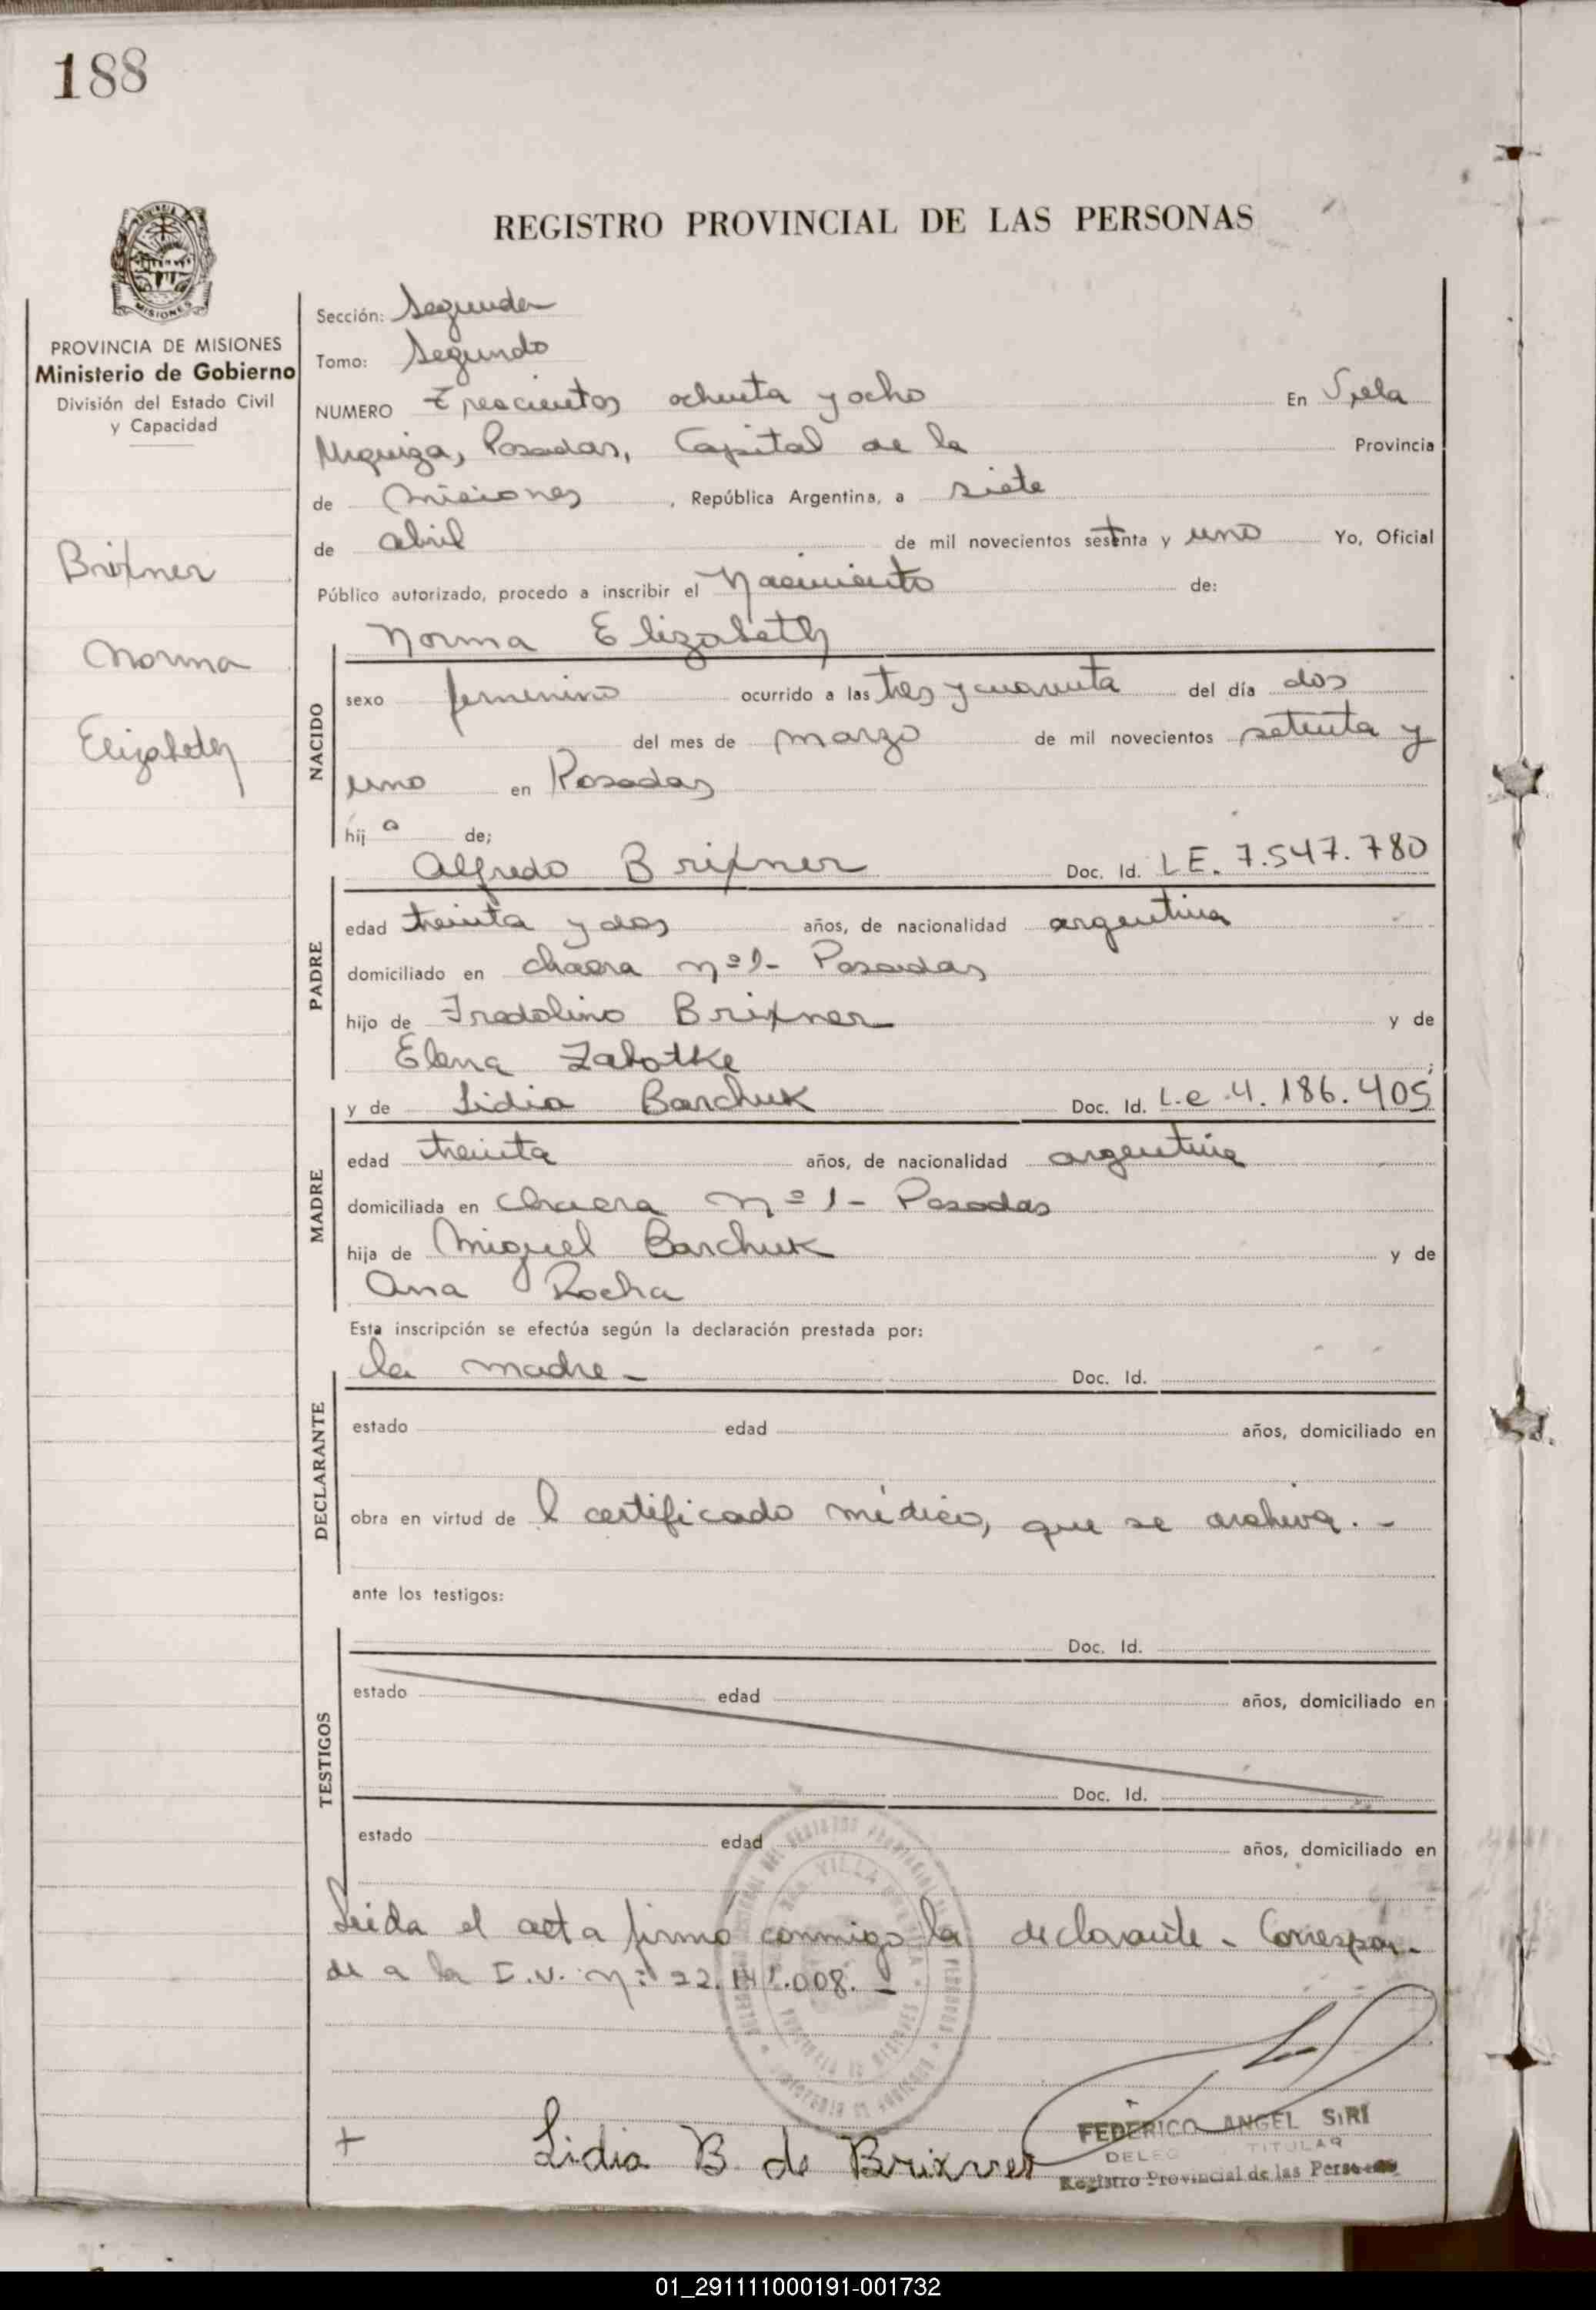 188
REGISTRO PROVINCIAL DE LAS PERSONAS
MISIONES
PROVINCIA DE MISIONES
Ministerio de Gobierno
División del Estado Civil
y Capacidad
Brixner
Norma
Elizabeth
Sección: Segunda
Tomo: Segundo
NUMERO Trescientos ochenta y ocho En Villa
Urquiza, Posadas, Capital de la Provincia
de Misiones, República Argentina, a siete
de abril de mil novecientos setenta y uno Yo, Oficial
Público autorizado, procedo a inscribir el Nacimiento de:
Norma Elizabeth
NACIDO
sexo femenino ocurrido a las tres y cuarenta del día dos
del mes de marzo de mil novecientos setenta y
uno en Posadas
hij a de;
Alfredo Brixner Doc. Id. L E. 7.547.780
PADRE
edad treinta y dos años, de nacionalidad argentina
domiciliado en chacra nº 1- Posadas
hijo de Fredolino Brixner y de
Elena Zabotke;
y de Lidia Barchuk Doc. Id. L.c. 4.186.405
MADRE
edad treinta años, de nacionalidad argentina
domiciliada en chacra nº 1- Posadas
hija de Miguel Barchuk y de
Ana Rocha
Esta inscripción se efectúa según la declaración prestada por:
la madre - Doc. Id.
DECLARANTE
estado edad años, domiciliado en
obra en virtud de l certificado médico, que se archiva. -
ante los testigos:
Doc. Id.
TESTIGOS
estado edad años, domiciliado en
Doc. Id.
estado edad años, domiciliado en
Leida el acta firmó conmigo la declarante - Correspon-
de a la I.N. nº 22.141.008. -
+ Lidia B. de Brixner
FEDERICO ANGEL SIRI
TITULAR
Registro Provincial de las Personas
01_291111000191-001732